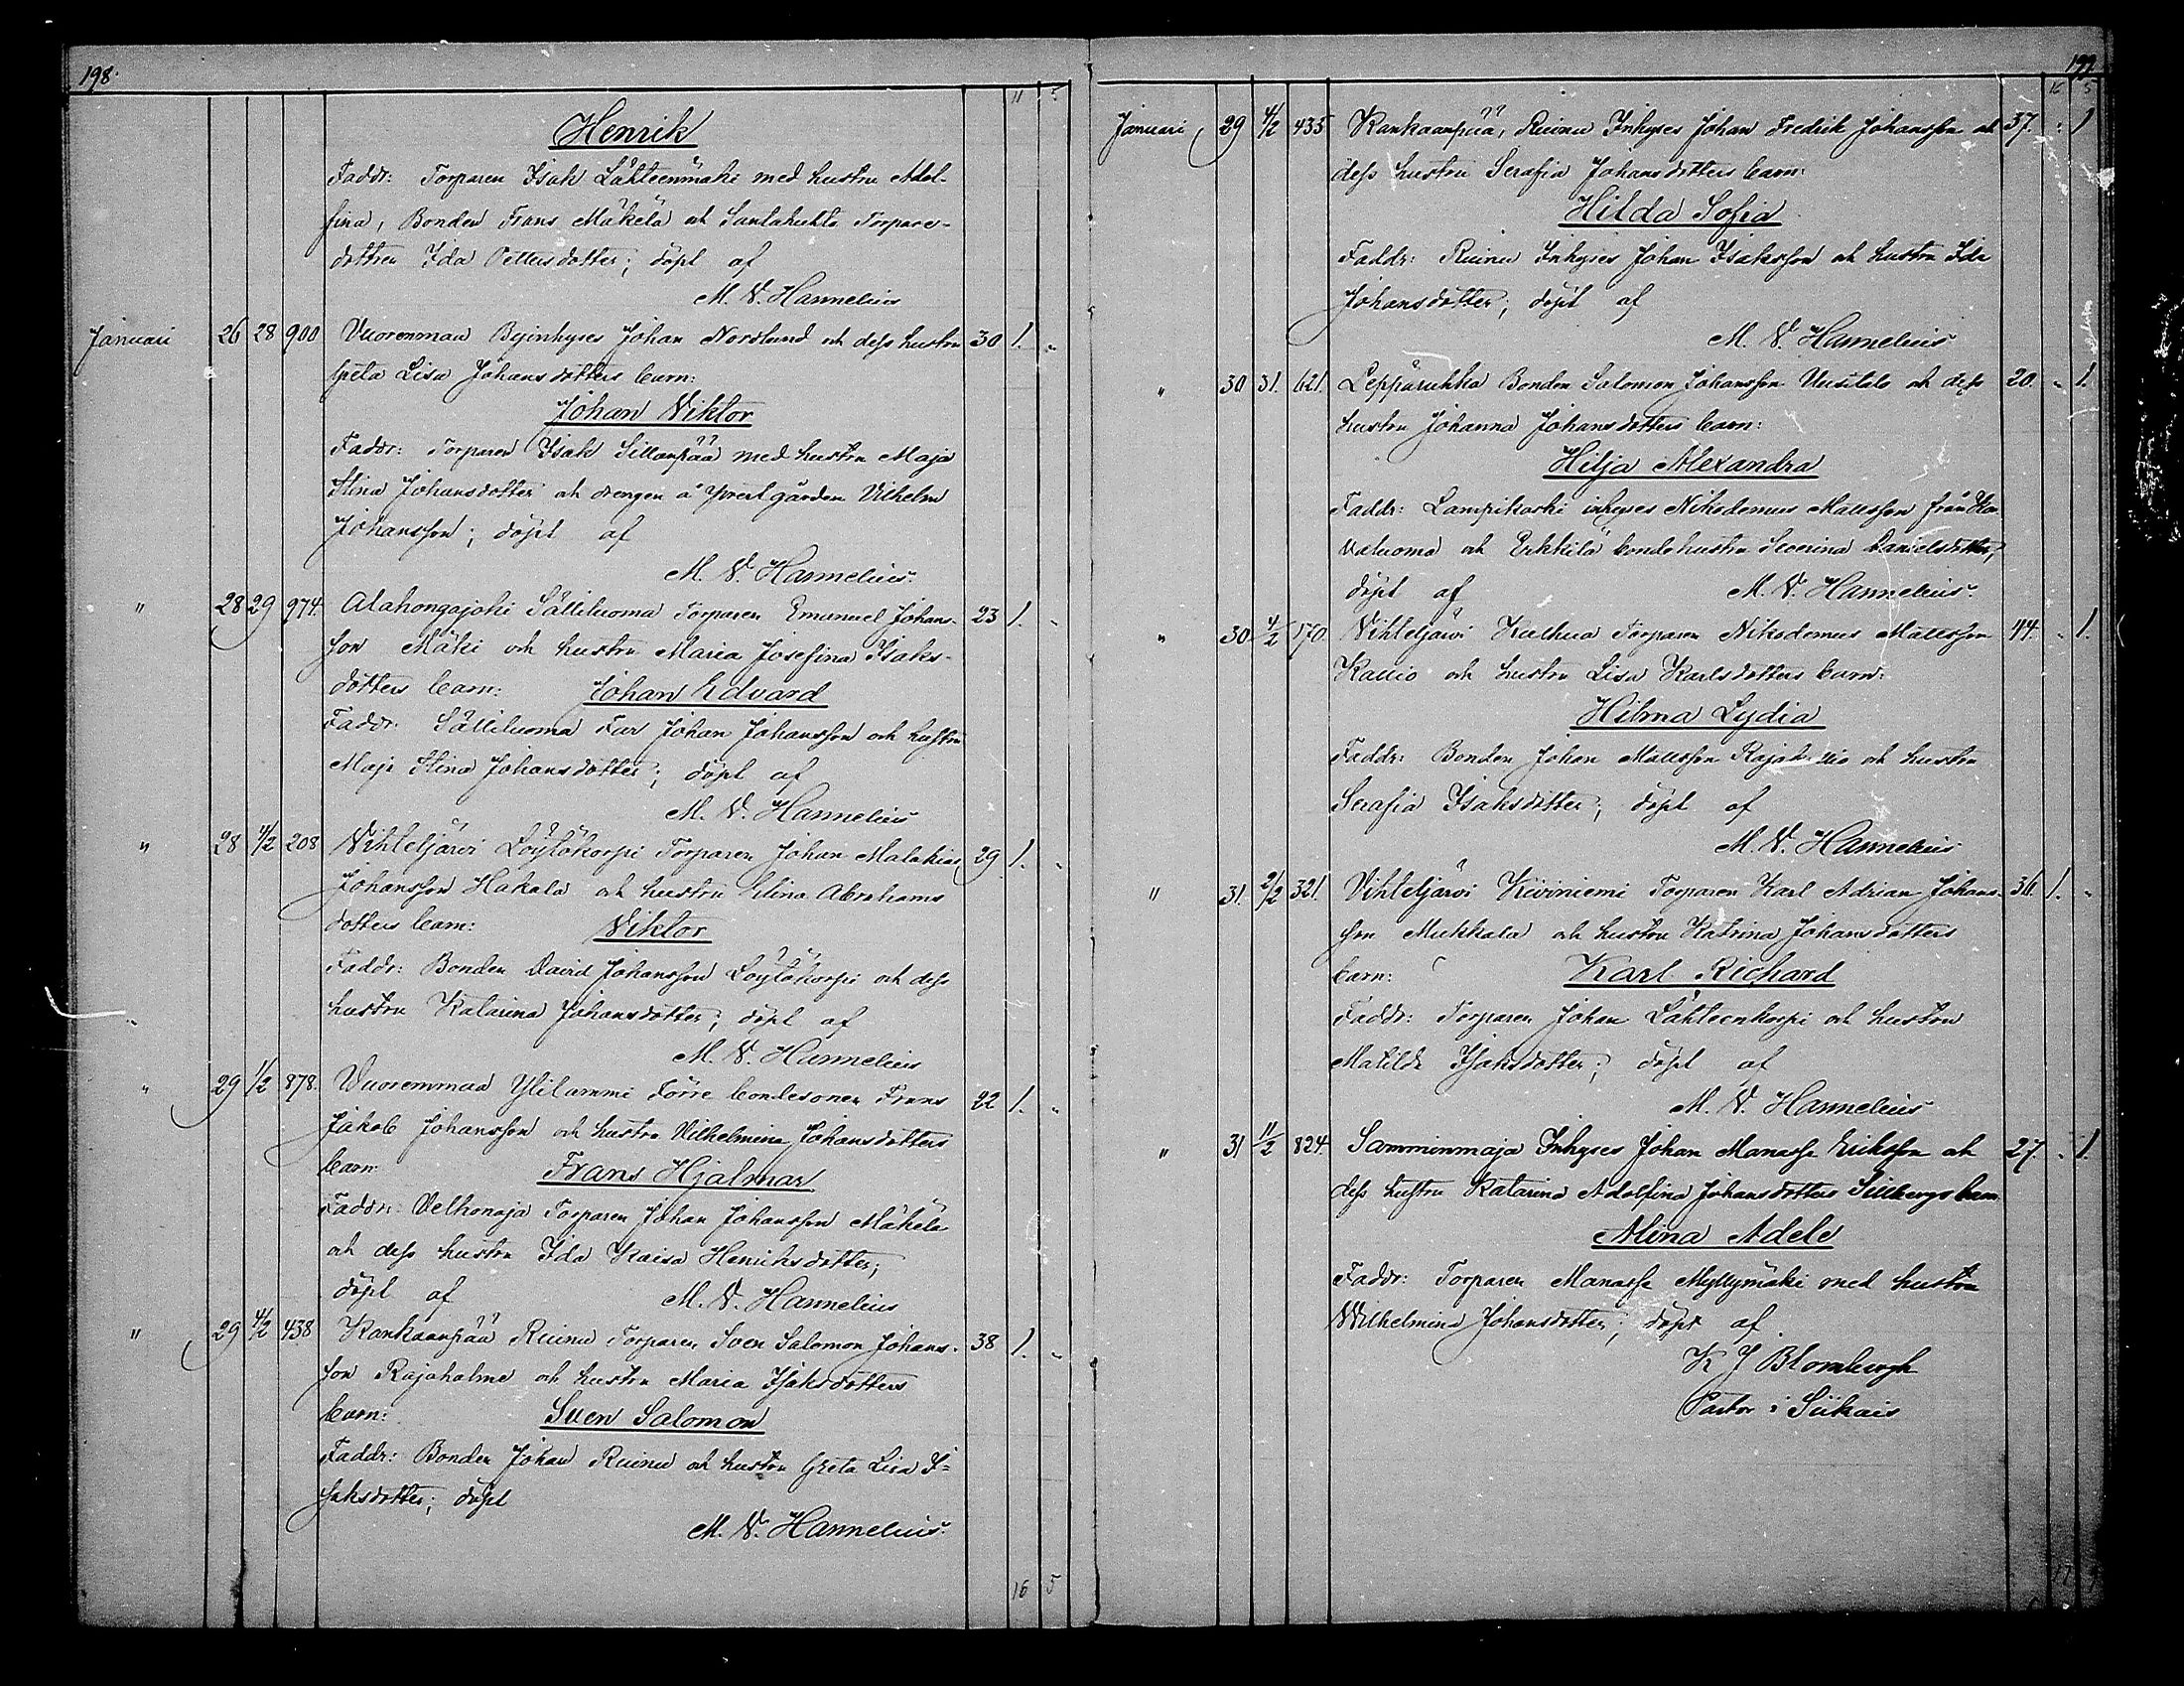 198.
11 5
Henrik
Faddr: Torparen Isak Lähteenmäki med hustru Adol-
fina, Bonden Frans Mäkelä och Santahuhta Torpare-
dottren Ida Pettersdotter; döpt af
M. V. Hannelius
Januari 26 28 900 Vuorenmaa Byinhyses Johan Nordlund och dess hustru 30 1. "
Greta Lisa Johansdotters barn:
Johan Viktor
Faddr: Torparen Isak Sillanpää med hustru Maja
Stina Johansdotter och drengen å Prestgården Vilhelm
Johansson; döpt af
M. V. Hannelius.
" 28 29 974. Alahongajoki Sälliluoma Torparen Emanuel Johans- 23 1. "
son Mäki och hustru Maria Josefina Isaks-
dotters barn: Johan Edvard
Faddr: Sälliluoma Far Johan Johansson och hustru
Maja Stina Johansdotter; döpt af
M. V. Hannelius
" 28 4/2 208 Vihteljärvi Löytökorpi Torparen Johan Malakias 29 1. "
Johansson Hakala och hustru Stina Abrahams
dotters barn: Viktor
Faddr: Bonden David Johansson Löytökorpi och dess
hustru Katarina Johansdotter; döpt af
M. V. Hannelius
" 29 1/2 878. Vuorenmaa Ylilammi Förre bondesonen Frans 22 1. "
Jakob Johansson och hustru Vilhelmina Johansdotters
barn: Frans Hjalmar
Faddr: Velhonoja Torparen Johan Johansson Mäkelä
och dess hustru Ida Kaisa Henriksdotter;
döpt af M. V. Hannelius
" 29 4/2 438 Kankaanpää Ruinu Torparen Sven Salomon Johans- 38 1. "
son Rajahalme och hustru Maria Isaksdotters
barn: Sven Salomon
Faddr: Bonden Johan Ruinu och hustru Greta Lisa I=
saksdotter; döpt
M. V. Hannelius.
16 5
199
16 5
Januari 29 4/2 435 Kankaanpää, Ruinu Inhyses Johan Fredrik Johansson och 37. " 1
dess hustru Serafia Johansdotters barn:
Hilda Sofia
Faddr: Ruinu Inhyses Johan Isaksson och hustru Ida
Johansdotter; döpt af
M. V. Hannelius
" 30 31. 621. Leppäruhka Bonden Salomon Johansson Uusitalo och dess 20. " 1.
hustru Johanna Johansdotters barn:
Hilja Alexandra
Faddr: Lampikoski inhyses Nikodemus Mattsson från
och Erkkilä bondehustru Severina Danielsdotter;
döpt af M. V. Hannelius.
" 30 4/2 170. Vihteljärvi Kulhua Torparen Nikodemus Mattsson 44. " 1.
Kallio och hustru Lisa Karlsdotters barn:
Hilma Lydia
Faddr: Bonden Johan Mattsson och hustru
Serafia Isaksdotter; döpt af
M. V. Hannelius
" 31. 2/2 321. Vihteljärvi Kiviniemi Torparen Karl Adrian Johans- 36. 1. "
son Mukkala och hustru Katrina Johansdotters
barn: Karl Richard
Faddr: Torparen Johan Lähteenkorpi och hustru
Matilda Isaksdotter; döpt af
M. V. Hannelius
" 31 11/2 824. Samminmaja Inhyses Johan Manasse Eriksson och 27. " 1.
dess hustru Katarina Adolfina Johansdotters Sillbergs barn
Alina Adele
Faddr: Torparen Manasse Myllymäki med hustru
Wilhelmina Johansdotter; döpt af
K J Blombergh
Pastor i Siikais
17